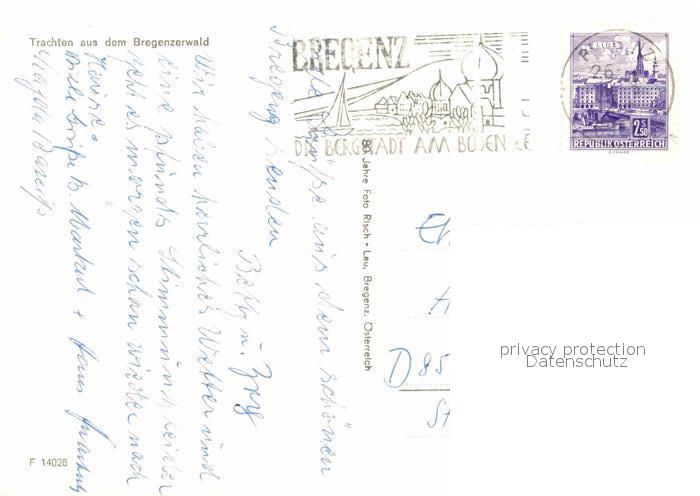 Trachten aus dem Bregenzerwald
BREGENZ
DIE BERGSTADT AM BODENSEE
LINZ
2.50
REPUBLIK ÖSTERREICH
Liebe Grüße aus dem schönen
Bregenz senden
Betty u.
Wir haben herrliches Wetter und
eine Stimmung leider
geht es morgen schon wieder nach
Hause.
viele Grüße +
80 Jahre Foto Risch-Lau, Bregenz, Österreich
D 85
St
F 14026
privacy protection
Datenschutz